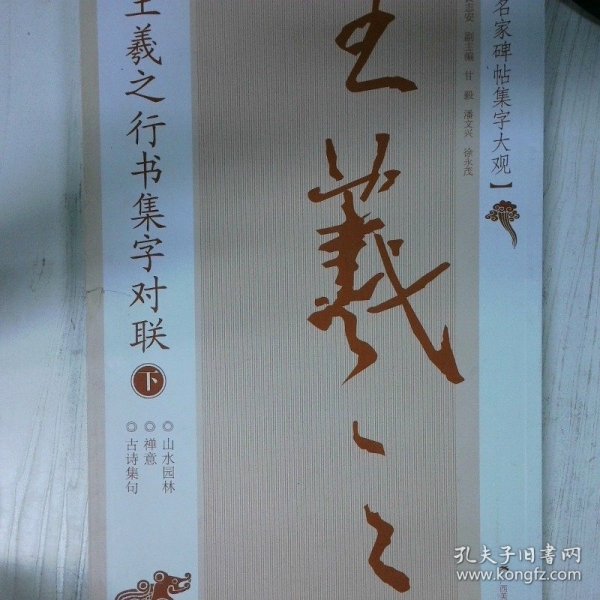 名家碑帖集字大观】
安 副主编 甘毅 潘文兴 徐永茂
王羲之
王羲之行书集字对联
下
◎山水园林
◎禅意
◎古诗集句
孔夫子旧书网
www.kongfz.com